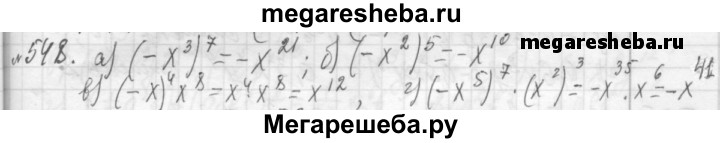 megaresheba.ru
№548. а) (-x³)⁷ = -x²¹; б) (-x²)⁵ = -x¹⁰
www.megaresheba.ru
в) (-x)⁴x⁸ = x⁴x⁸ = x¹², г) (-x⁵)⁷·(x²)³ = -x³⁵·x⁶ = -x⁴¹
Мегарешеба.ру